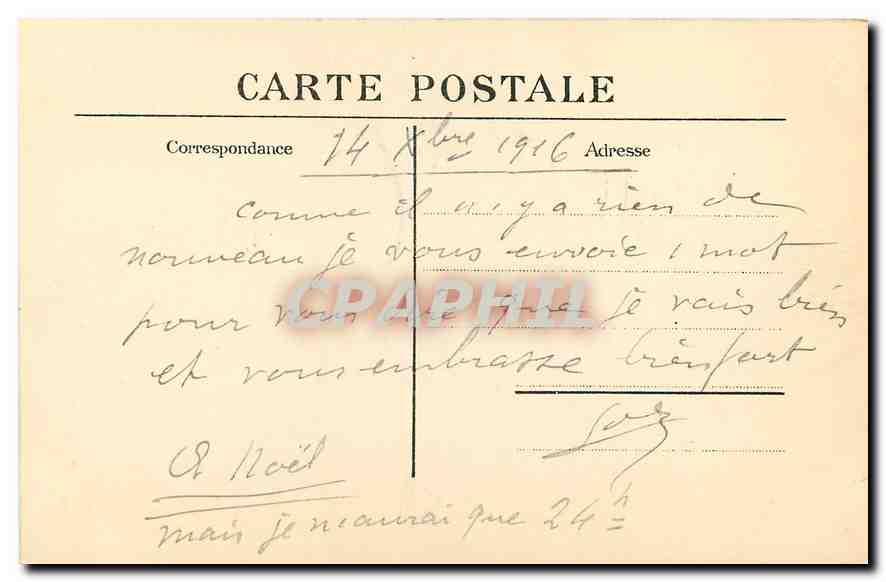 CARTE POSTALE
Correspondance 14 Xbre 1916 Adresse
comme il n'y a rien de
nouveau je vous envoie 1 mot
pour vous dire que je vais bien
et vous embrasse bien fort
A Noël
mais je n'aurai que 24h
CPAPHIL